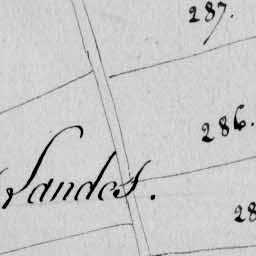 287.
286.
Landes.
28